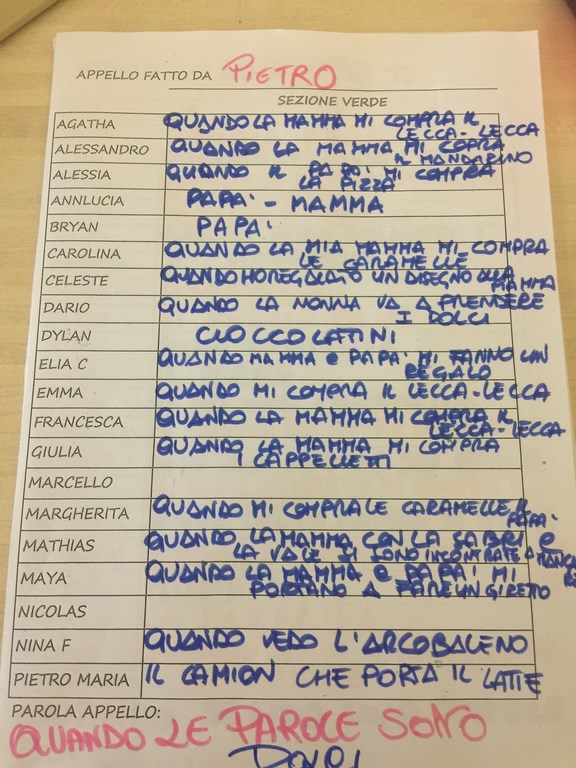 APPELLO FATTO DA PIETRO
SEZIONE VERDE
AGATHA QUANDO LA MAMMA MI COMPRA IL
LECCA-LECCA
ALESSANDRO QUANDO LA MAMMA MI COPRA
IL MANDARINO
ALESSIA QUANDO IL PAPA' MI COMPRA
LA PIZZA
ANNLUCIA PAPA' - MAMMA
BRYAN PAPA'
CAROLINA QUANDO LA MIA MAMMA MI COMPRA
LE CARAMELLE
CELESTE QUANDO HO REGALATO UN DISEGNO ALLA
MAMMA
DARIO QUANDO LA NONNA VA A PRENDERE
I DOLCI
DYLAN CIOCCOLATINI
ELIA C QUANDO MAMMA e PAPA' MI FANNO UN
REGALO
EMMA QUANDO MI COMPRA IL LECCA-LECCA
FRANCESCA QUANDO LA MAMMA MI COMPRA IL
LECCA-LECCA
GIULIA QUANDO LA MAMMA MI COMPRA
I CAPPELLETTI
MARCELLO
MARGHERITA QUANDO MI COMPRA LE CARAMELLE IL
PAPA'
MATHIAS QUANDO LA MAMMA CON LA SABRI e
LA VALE SI SONO INCONTRATE A
MAYA QUANDO LA MAMMA e PAPA' MI
PORTANO A FARE UN GIRETTO
NICOLAS
NINA F QUANDO VEDO L'ARCOBALENO
PIETRO MARIA IL CAMION CHE PORTA IL LATTE
PAROLA APPELLO:
QUANDO LE PAROLE SONO
DOLCI